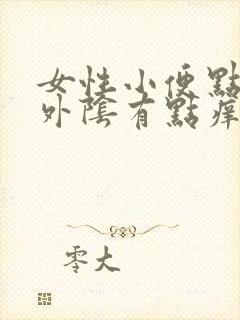 女性小便點
外陰有點痒
零大